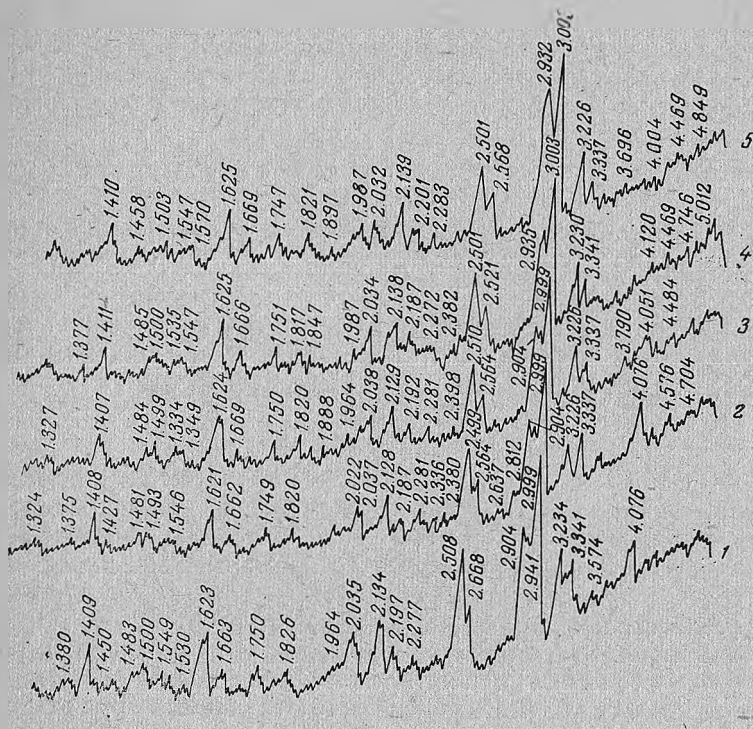 1.410 1.458 1.503 1.547 1.570 1.625 1.669 1.747 1.821 1.897 1.987 2.032 2.139 2.201 2.283 2.501 2.568 2.932 3.226 3.337 3.696 4.004 4.469 4.849 5
1.377 1.411 1.485 1.500 1.535 1.547 1.625 1.666 1.751 1.817 1.847 1.987 2.034 2.138 2.187 2.272 2.382 2.501 2.521 2.935 3.003 3.230 3.341 4.120 4.469 4.746 5.012 4
1.327 1.407 1.484 1.499 1.334 1.349 1.624 1.669 1.750 1.820 1.888 1.964 2.038 2.129 2.192 2.281 2.398 2.510 2.564 2.904 2.999 3.226 3.337 3.790 4.051 4.484 3
1.324 1.375 1.408 1.427 1.481 1.493 1.546 1.621 1.662 1.749 1.820 2.022 2.037 2.128 2.187 2.281 2.336 2.380 2.499 2.564 2.637 2.812 2.999 2.904 3.226 3.337 4.076 4.576 4.704 2
1.380 1.409 1.450 1.483 1.500 1.549 1.530 1.623 1.663 1.750 1.826 1.964 2.035 2.134 2.197 2.277 2.508 2.668 2.904 2.941 2.999 3.234 3.341 3.574 4.076 1